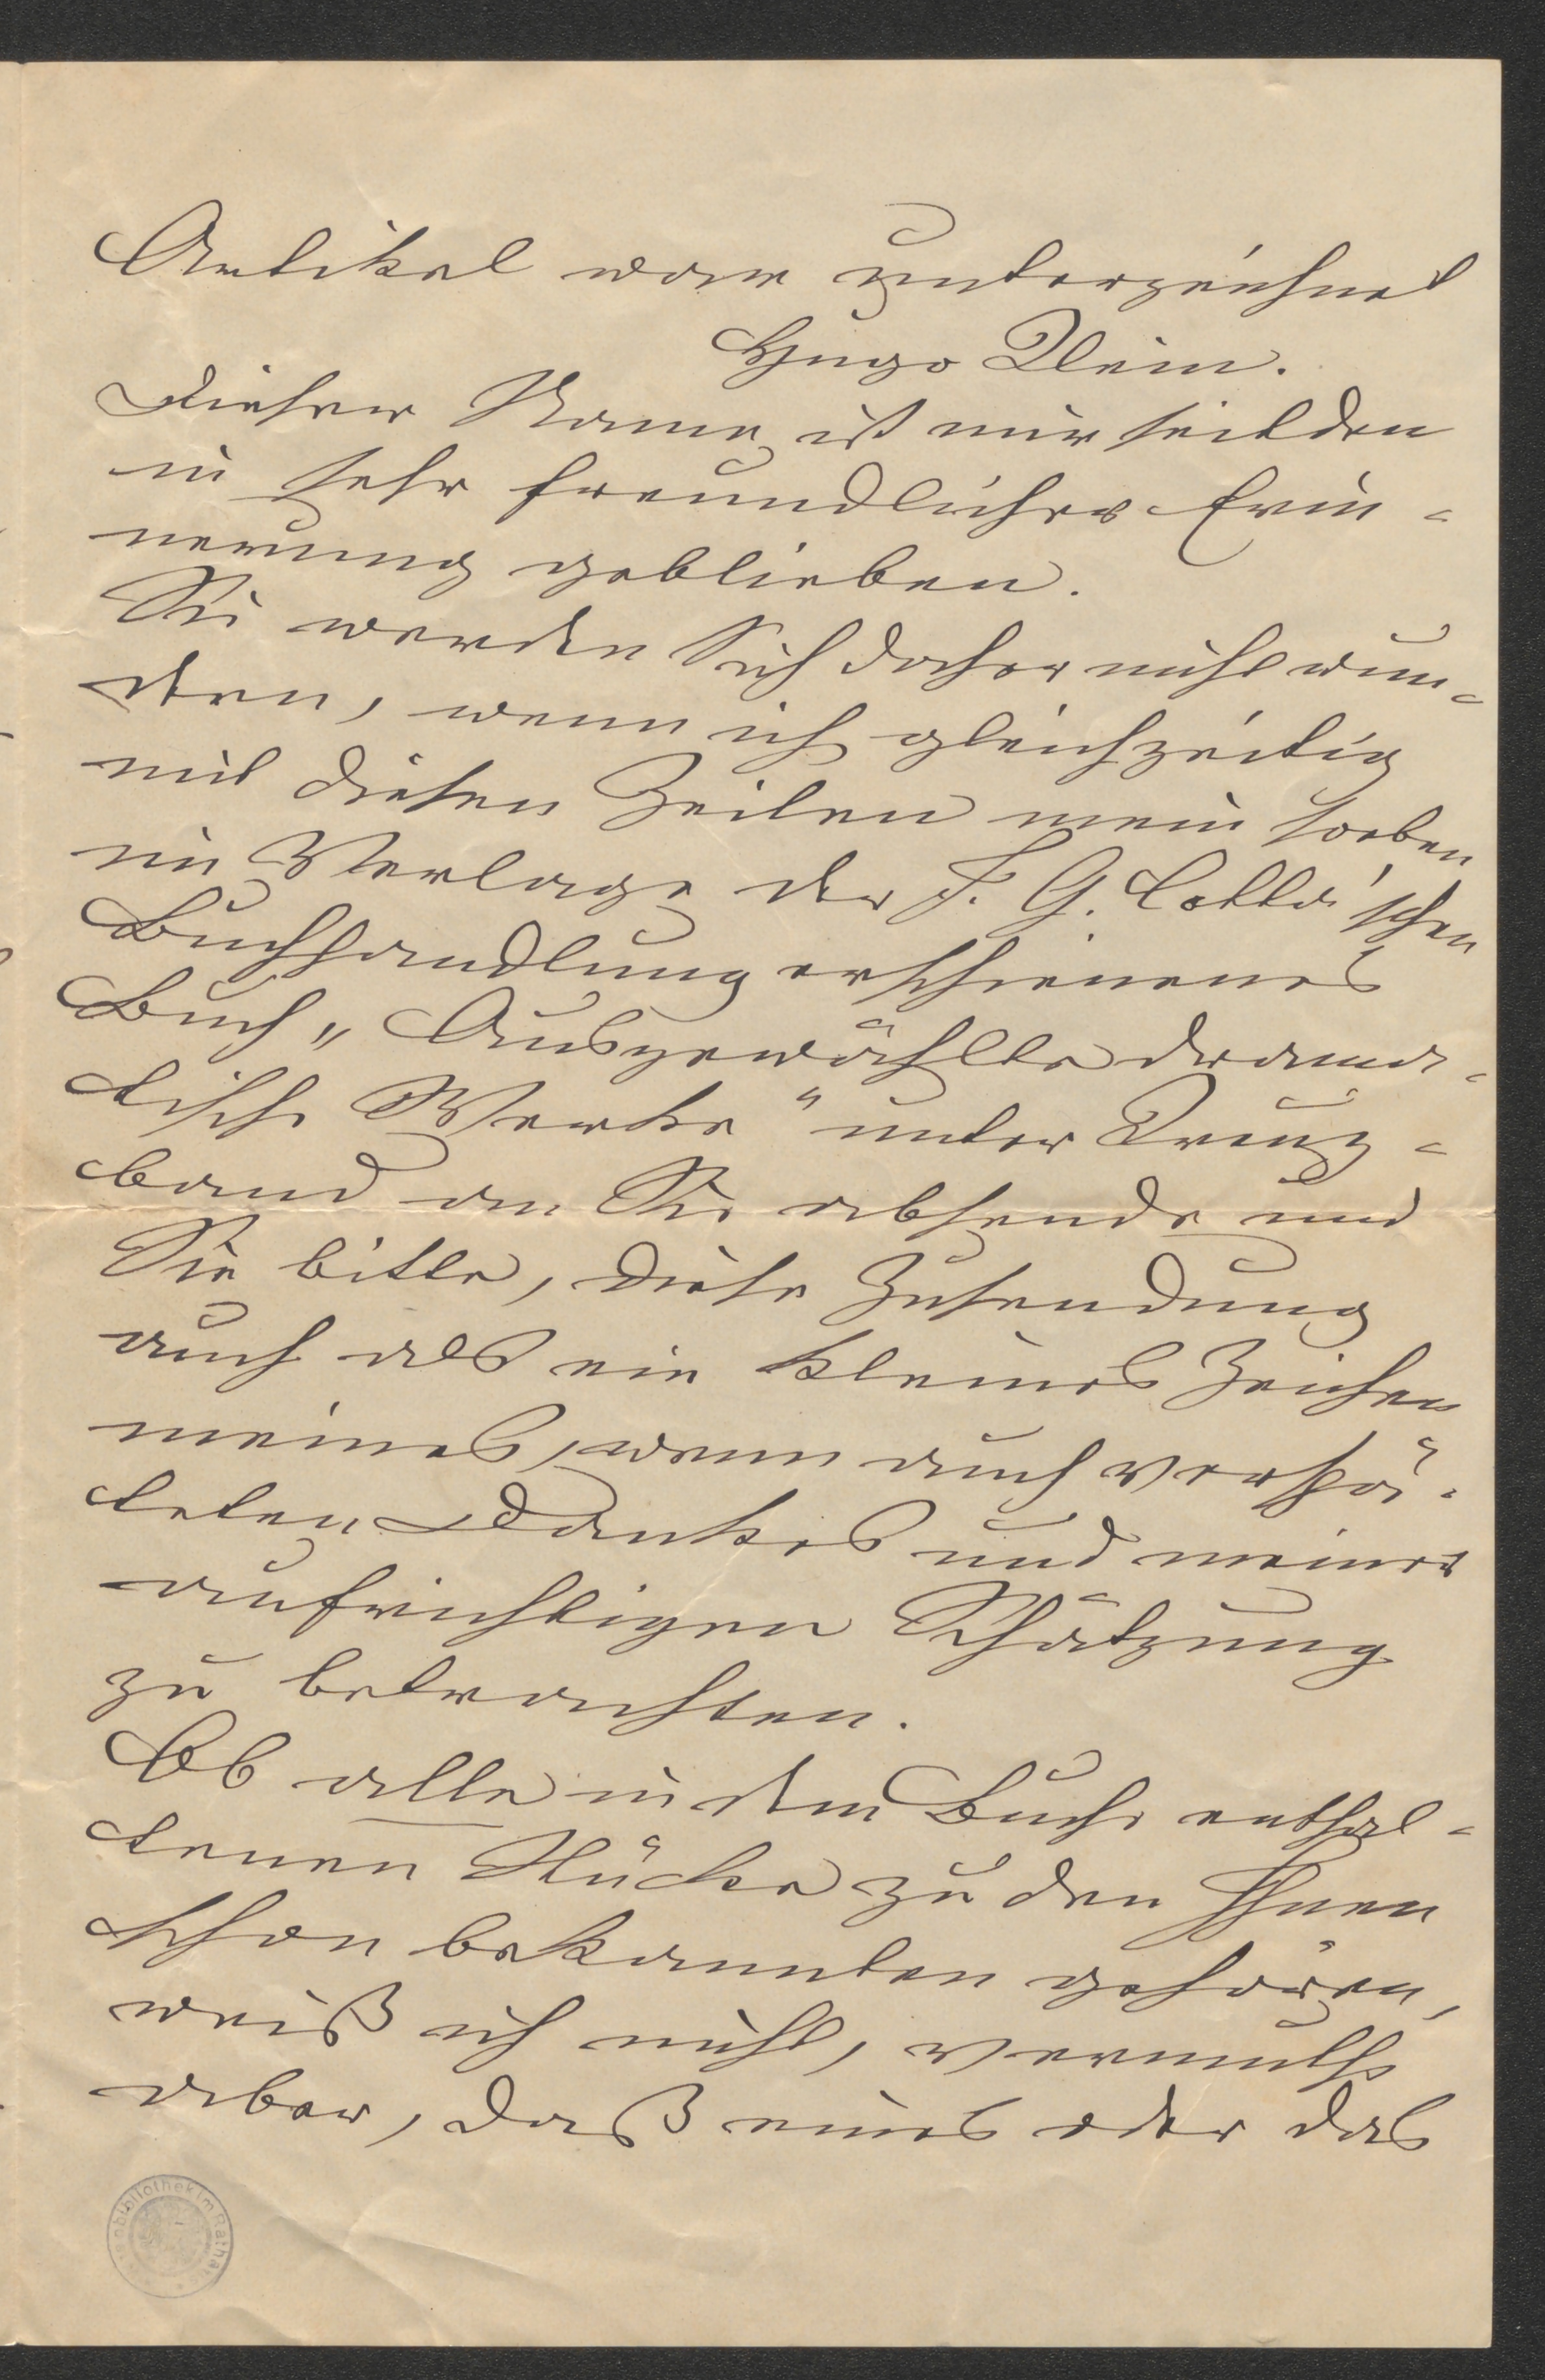 Artikel war unterzeichnet
Hugo Klein.
Dieser Name ist mir seitdem
in sehr freundlicher Erin-
nerung geblieben.
Sie werden Sich daher nicht wun-
dern, wenn ich gleichzeitig
mit diesen Zeilen mein soeben
im Verlage der J. G. Cotta'schen
Buchhandlung erschienenes
Buch „Ausgewählte drama-
tische Werke" unter Kreuz-
band an Sie absende und
Sie bitte, diese Zusendung
auch als ein kleines Zeichen
meines, wenn auch verspä-
teten Dankes und meiner
aufrichtigen Schätzung
zu betrachten.
Ob alle in dem Buche enthal-
tenen Stücke zu den Ihnen
schon bekannten gehören,
weiß ich nicht, vermuthe
aber, daß eines oder das